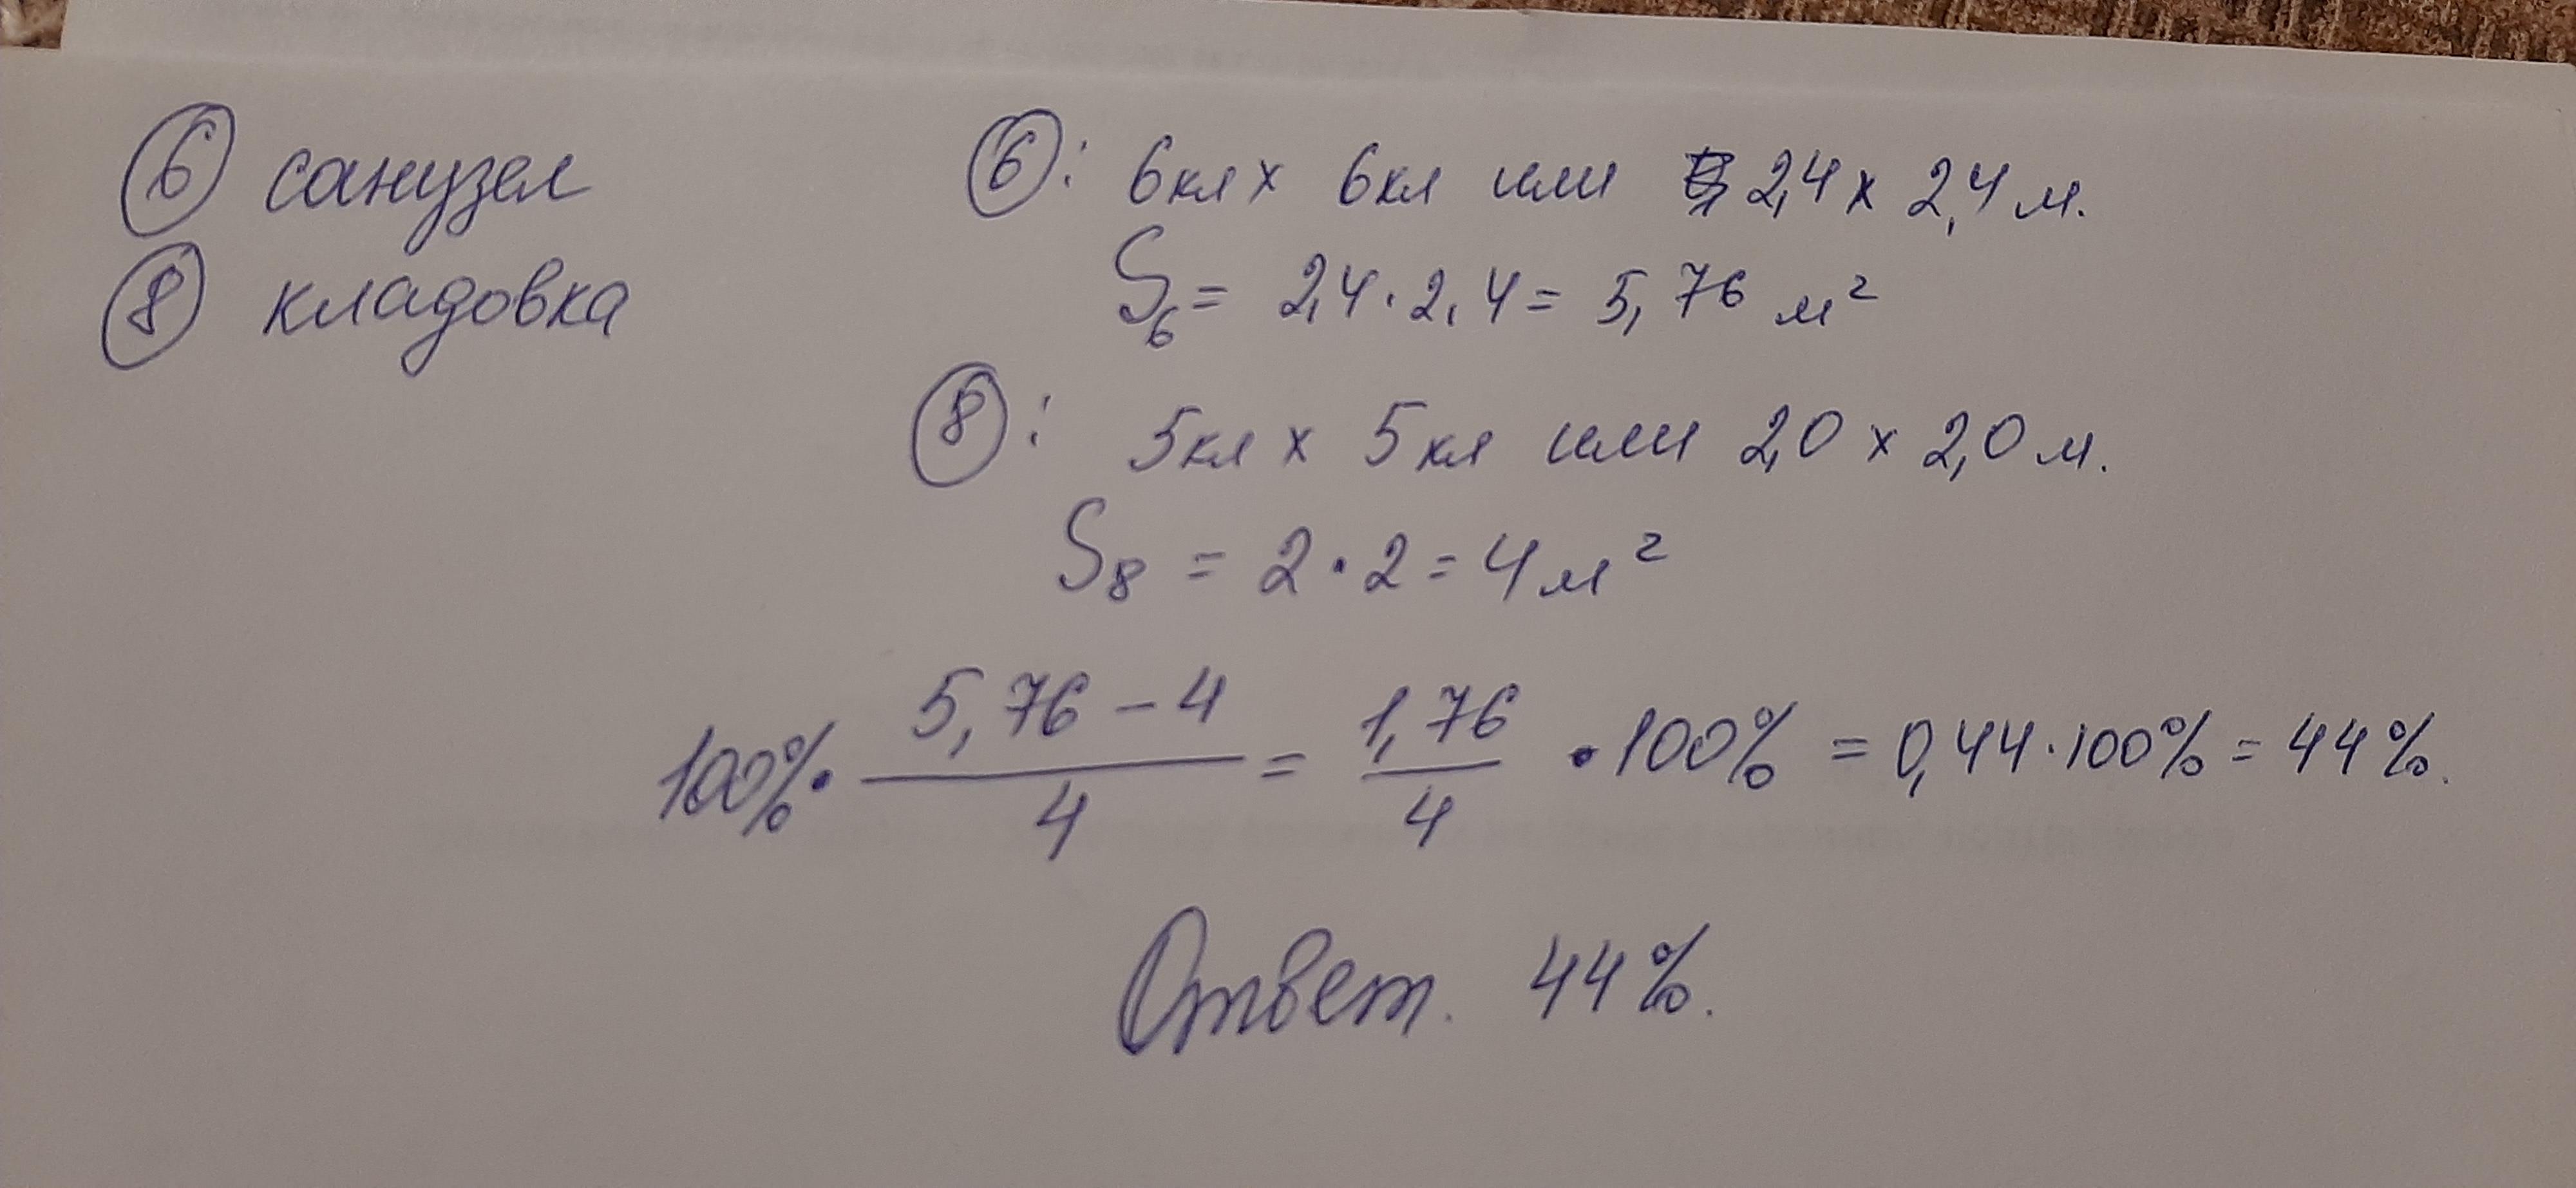 6 санузел
8 кладовка
6: 6кл x 6кл или 2,4 x 2,4 м.
S6 = 2,4 · 2,4 = 5,76 м²
8: 5кл x 5кл или 2,0 x 2,0 м.
S8 = 2 · 2 = 4 м²
100% · (5,76 - 4)/4 = 1,76/4 · 100% = 0,44 · 100% = 44%.
Ответ. 44%.